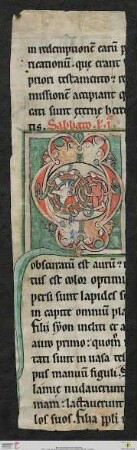 in redemptionē earū p
ricationū. que erant
priori testamento: re
missionē accipiant q
cati sunt eterne here
tis. Sabbato
obscuratū est aurū: m
tus est color optimu
persi sunt lapides s
in capite omniū pla
Filii syon incliti et a
auro primo: quom
tati sunt in uasa te
pus manuū figuli. S
lamie nudauerunt
mam: lactauerunt
los suos. Filia ppli